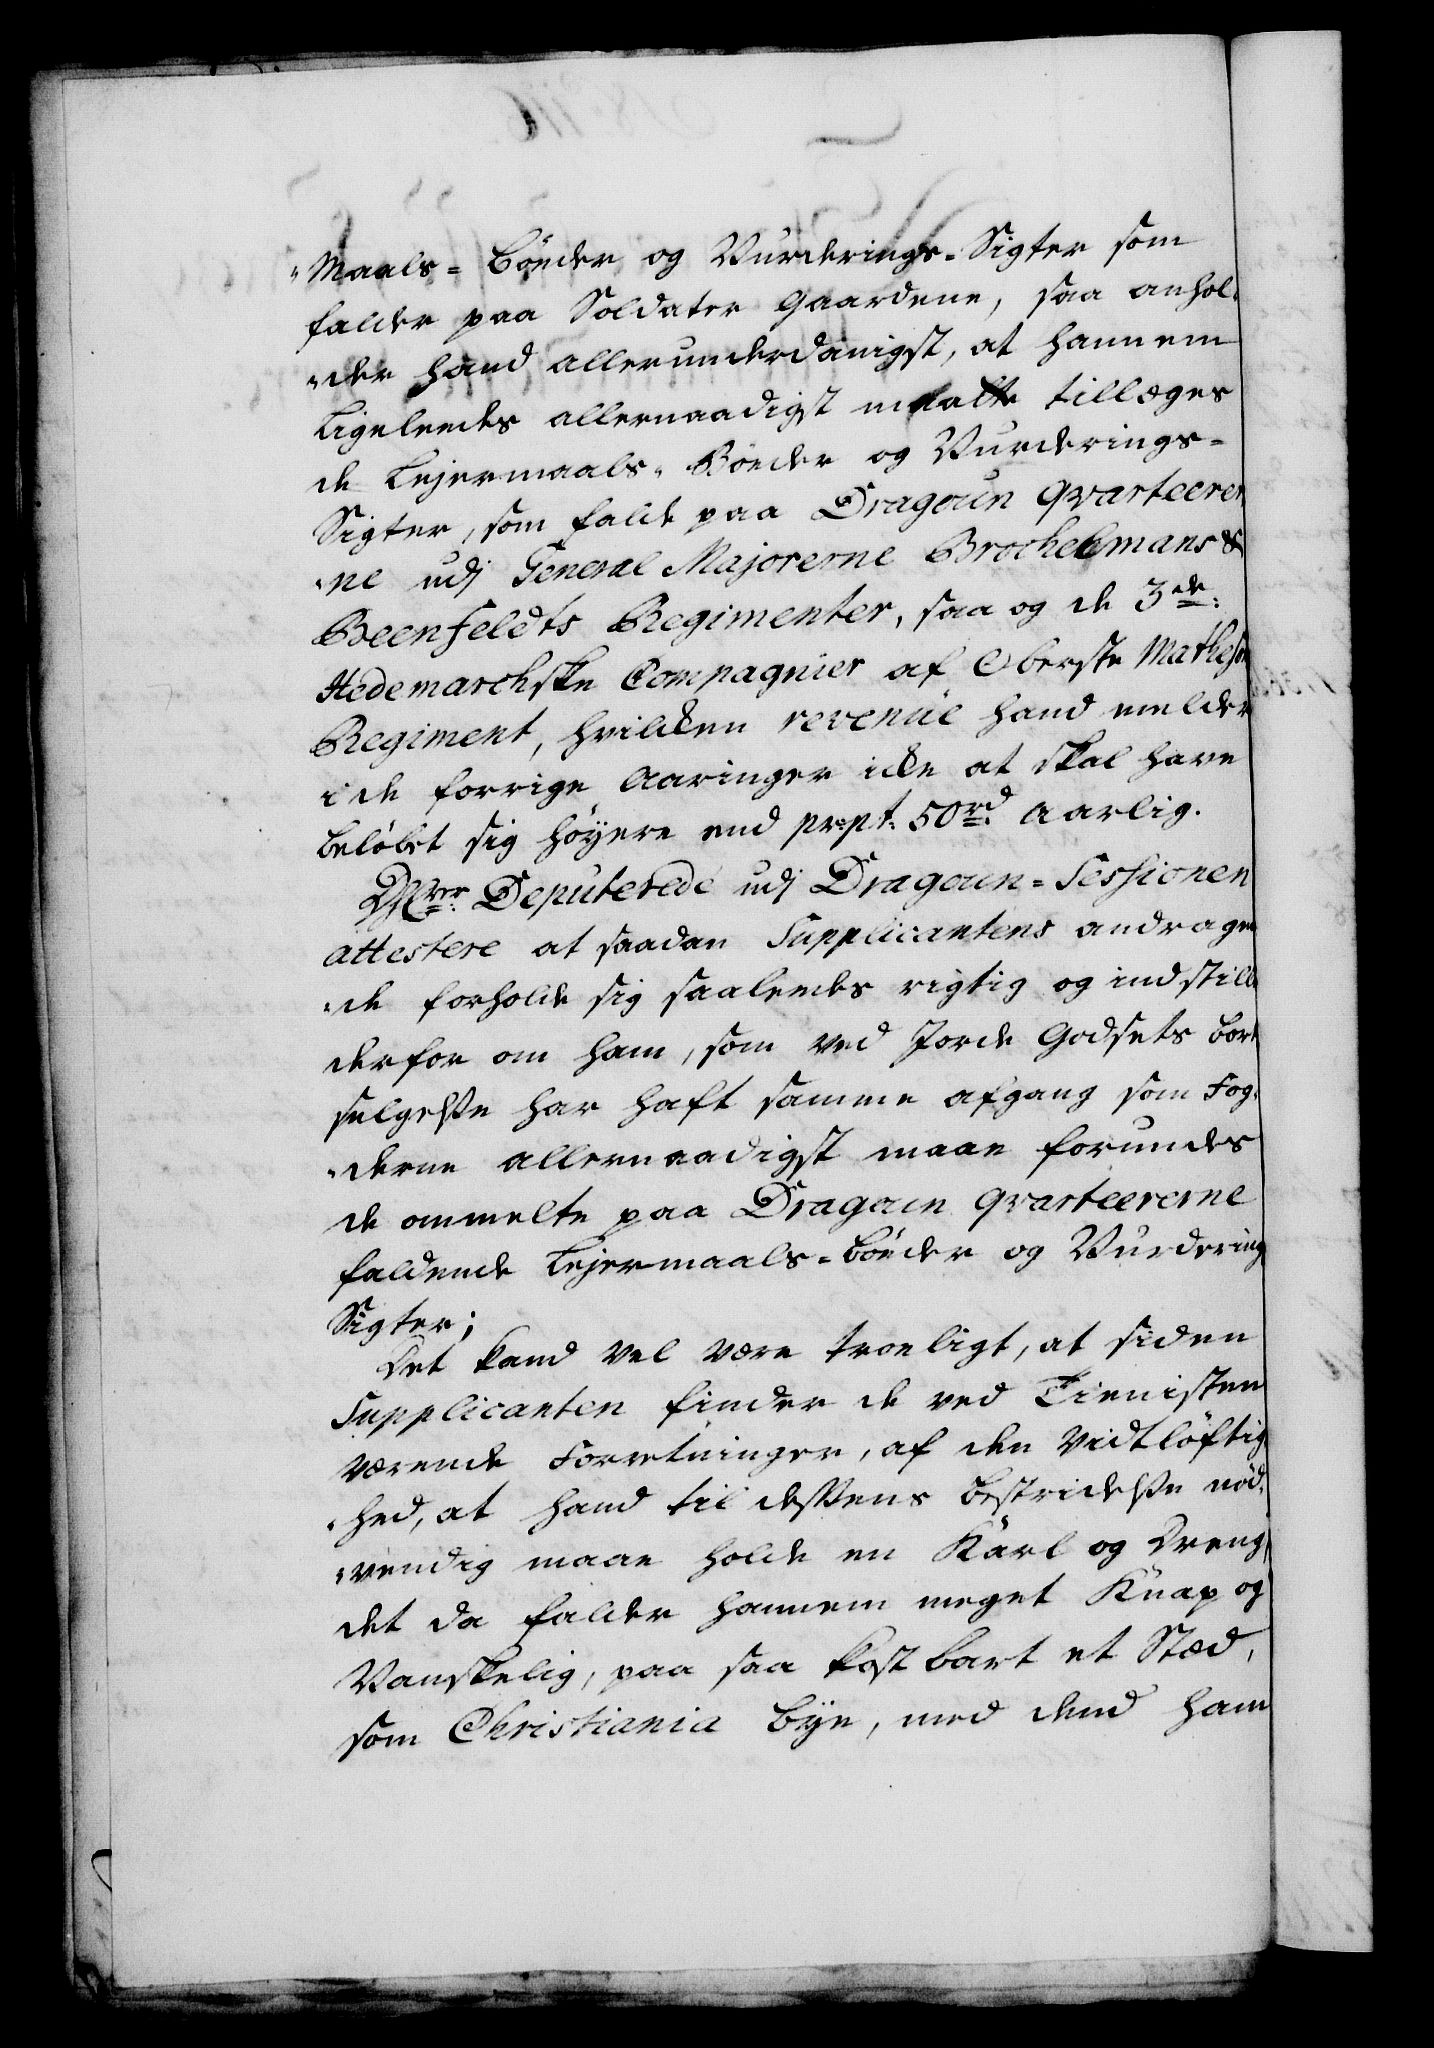 "Maals- Bøeder og Vurderings-Sigter som
falder paa Soldater Gaardene, saa anhol-
"der hand allerunderdanigst, at hannem
Ligeleedes allernaadigst maatte tillæges
de Lejermaals- Bøeder og Vurderings-
Sigter, som falde paa Dragoun qvarteerer
"ne udj General Majorerne Brockelmans &
Beenfeldts Regimenter, saa og de 3de:
Hedemarchske Compagnier af Oberste Mathesons
Regiment, hvilcken revenüe hand melder
i de forrige Aaringer icke at skal have
beløbet sig høyere end pr:pt: 50 rd aarlig.
Deputerede udj Dragoun-Sessionen
attestere at saadan Supplicantens andragen
"de forholde sig saaledes rigtig og indstille
derfor om ham, som ved Jorde Godsets bort
selgelsse har haft samme afgang som Fog-
"derne allernaadigst maae forundes
de ommelte paa Dragoun qvarteererne
faldende Lejermaals-bøeder og Vurderings
Sigter;
Det kand vel være troeligt, at siden
Supplicanten finder de ved Tienisten
værende Forretninger, af den Vidtløftig
"hed, at hand til dessens bestridelsse nød-
"vendig maae holde en Karl og Dreng,
det da falder hannem meget Knap og
Vanskelig, paa saa kostbart et Stæd,
som Christiania bye, med dend ham